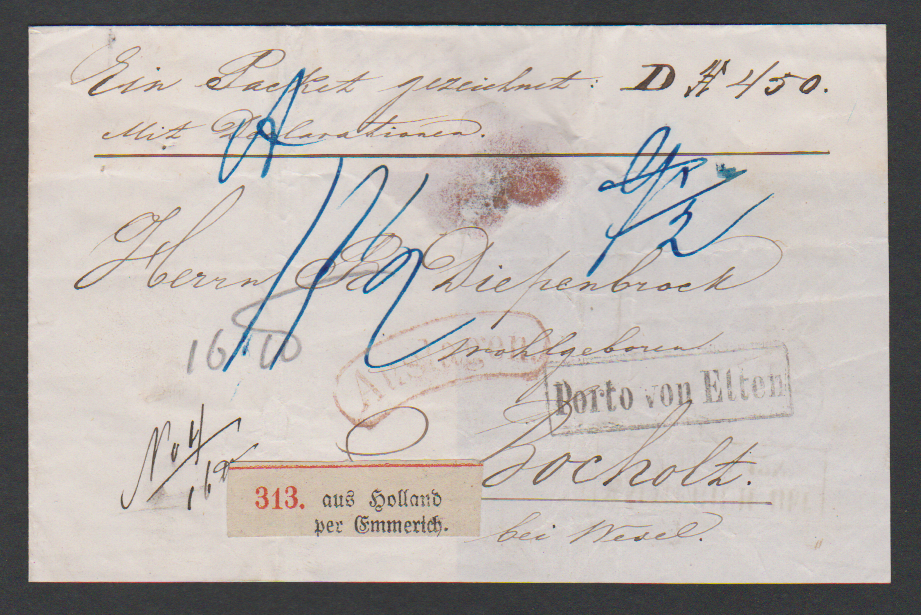 Ein Packet gezeichnet: D # 450.
Mit Declarationen.
Herrn B. Diepenbrock
Wohlgeboren
Porto von Elten
16 10
Bocholt.
bei Wesel.
No 4
313. aus Holland
per Emmerich.